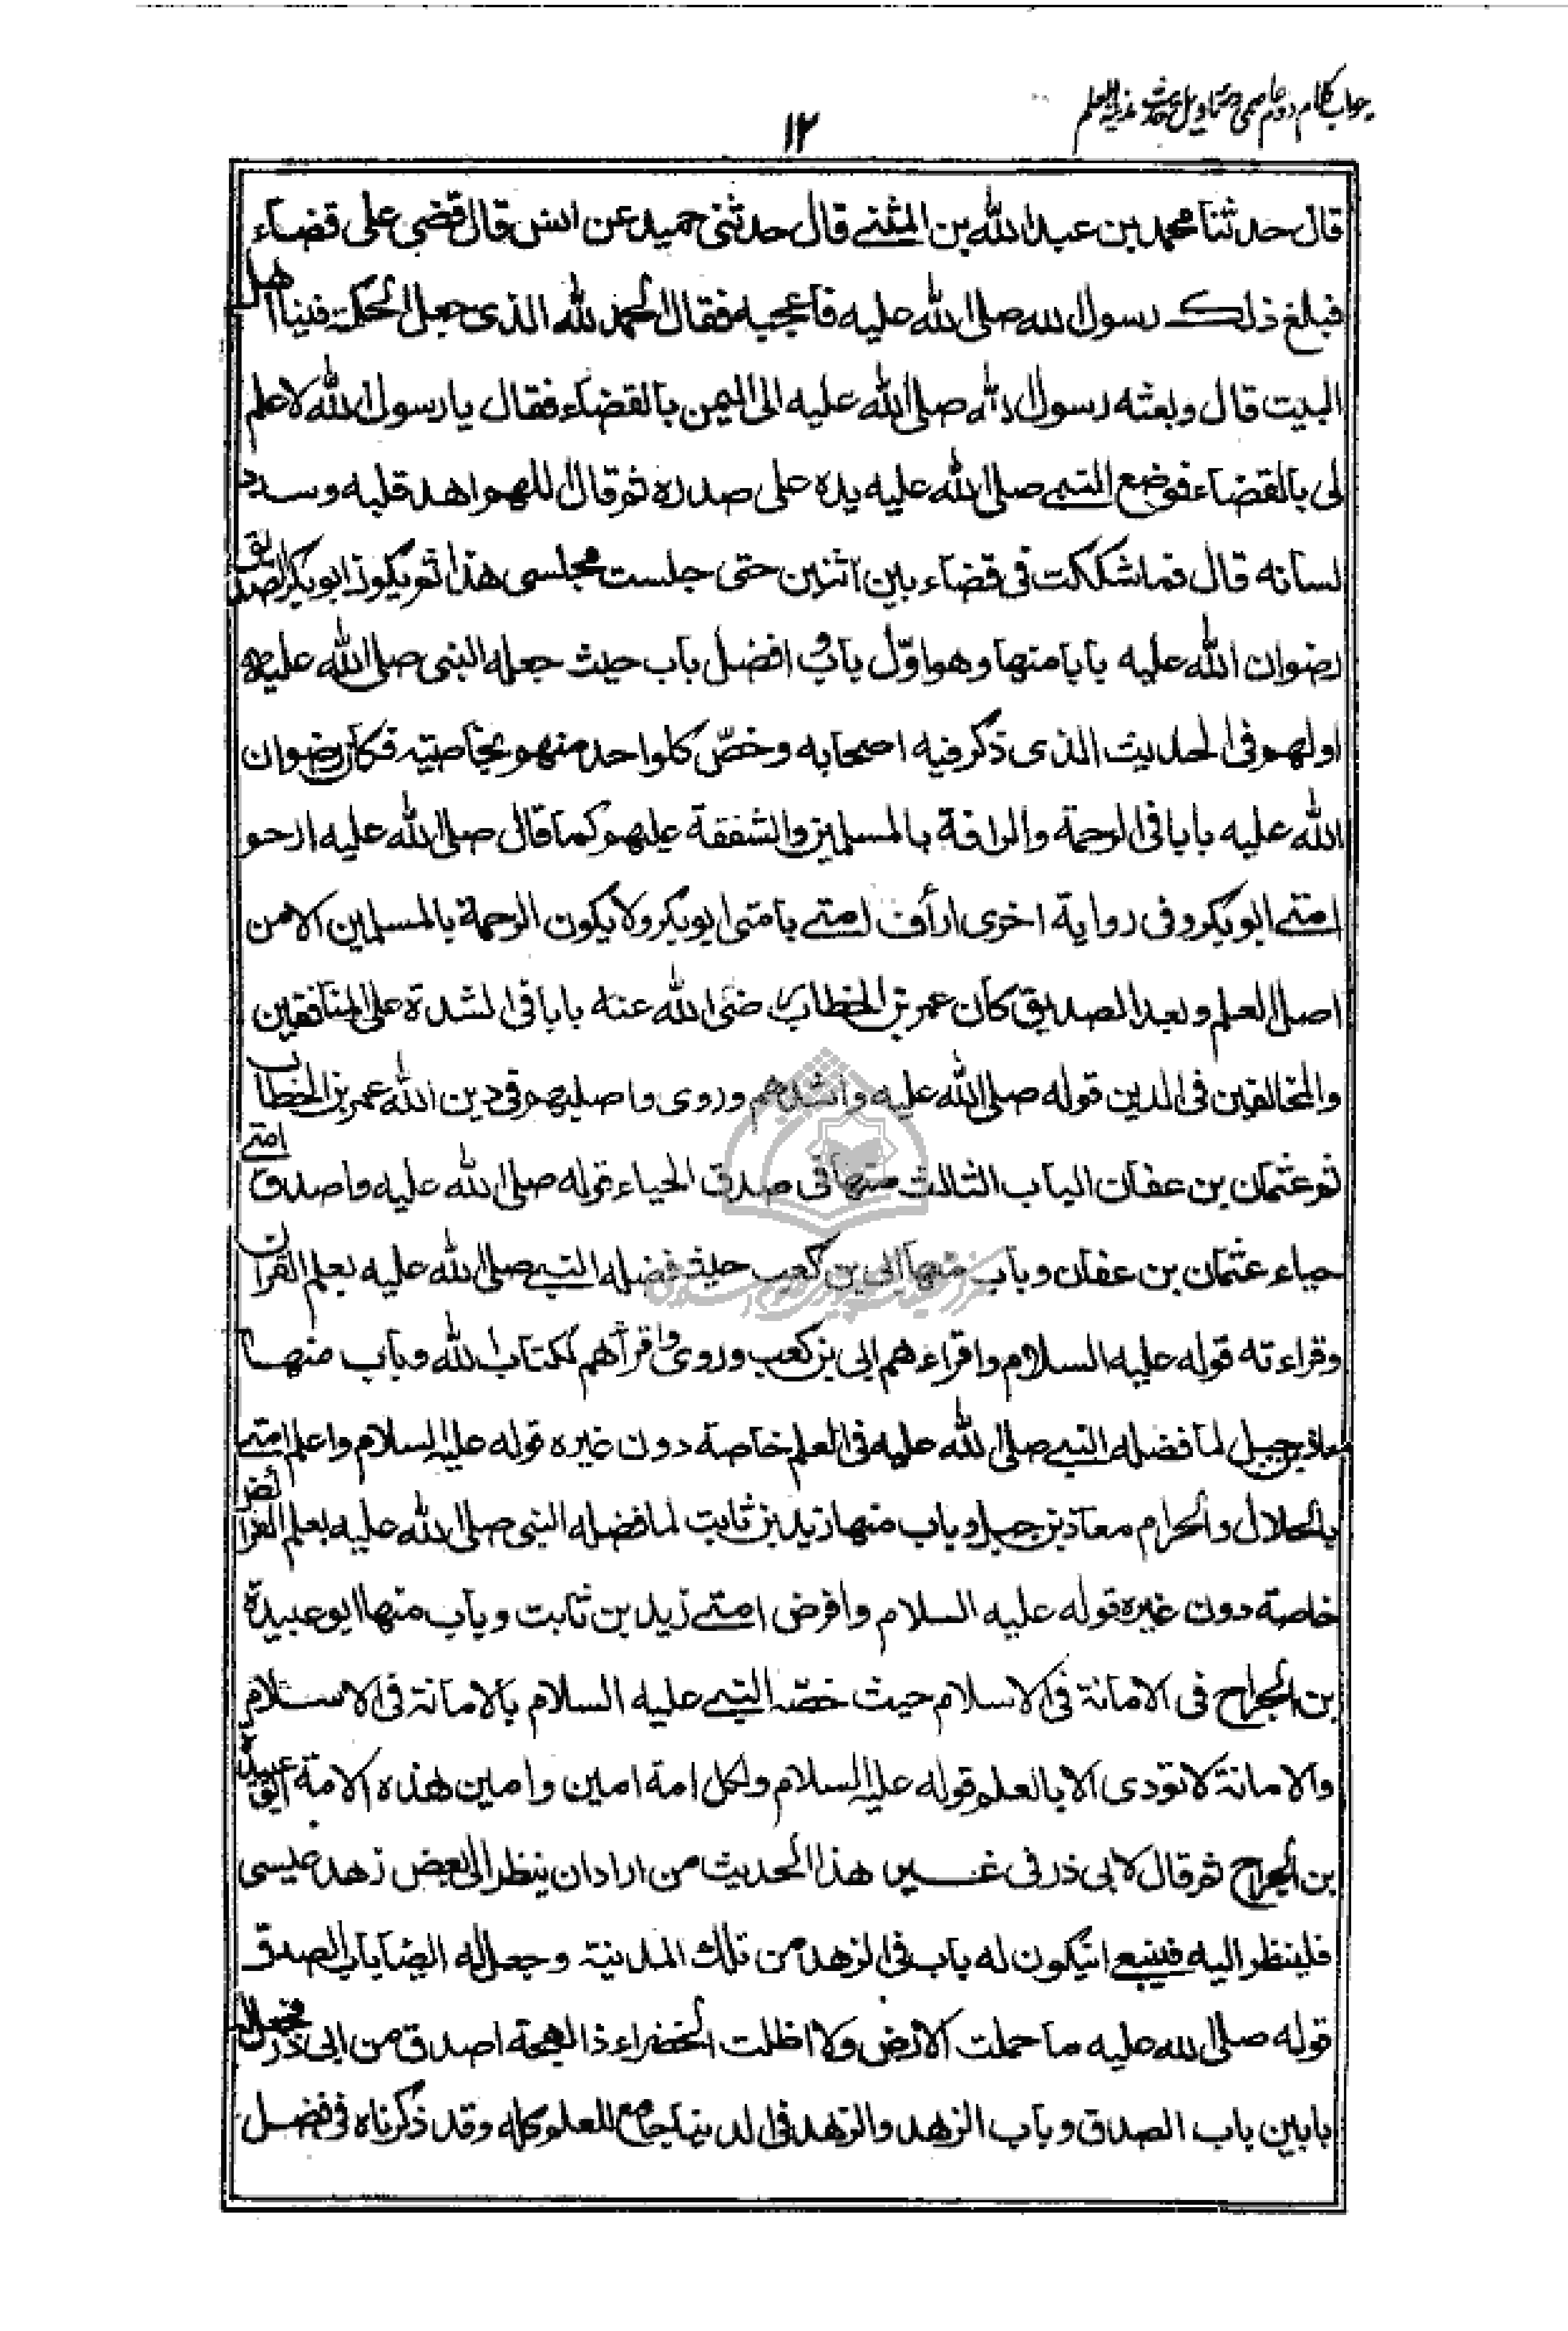 جواب کلام دوم عاصمی در تاویل حدیث مدینة العلم
۱۲
قال حدثنا محمد بن عبد الله بن المثنے قال حدثنی حمید عن انس قال قضی علی قضاء
فبلغ ذلک رسول الله صلی الله علیه فاعجبه فقال الحمد لله الذی جعل الحکمة فینا اهل
البیت قال وبعثه رسول الله صلی الله علیه الی الیمن بالقضاء فقال یا رسول الله لا علم
لی بالقضاء فوضع النبے صلی الله علیه یده علی صدره ثم قال اللهم اهد قلبه وسدد
لسانه قال فما شککت فی قضاء بین اثنین حتی جلست مجلسی هذا ثم یکون ابو بکر الصدیق
رضوان الله علیه بابا منها وهو اوّل باب و افضل باب حیث جعله النبی صلی الله علیه
اولهم فی الحدیث الذی ذکر فیه اصحابه وخصّ کل واحد منهم بخاصیته فکان رضوان
الله علیه بابا فی الرحمة والرافة بالمسلمین والشفقة علیهم کما قال صلی الله علیه ارحم
امتے ابو بکر وفی روایة اخری ارأف امتے بامتی ابو بکر ولا یکون الرحمة بالمسلمین الا من
اصل العلم وبعد الصدیق کان عمر بن الخطاب رضی الله عنه بابا فی الشدة علی المنافقین
والمخالفین فی الدین قوله صلی الله علیه واشدهم وروی واصلبهم فی دین الله عمر بن الخطاب
ثم عثمان بن عفان الباب الثالث منها فی صدق الحیاء قوله صلی الله علیه واصدق امتے
حیاء عثمان بن عفان وباب منها ابی بن کعب حیث فضله النبے صلی الله علیه بعلم القران
وقراءته قوله علیه السلام واقراءهم ابی بن کعب وروی واقرأهم لکتاب الله وباب منها
معاذ بن جبل لما فضله النبے صلی الله علیه فی العلم خاصة دون غیره قوله علیه السلام واعلم امتے
بالحلال والحرام معاذ بن جبل وباب منها زید بن ثابت لما فضله النبی صلی الله علیه بعلم الفرائض
خاصة دون غیره قوله علیه السلام وافرض امتے زید بن ثابت وباب منها ابو عبیدة
بن الجراح فی الامانة فی الاسلام حیث خصّه النبے علیه السلام بالامانة فی الاسلام
والامانة لا تؤدی الا بالعلم قوله علیه السلام ولکل امة امین وامین هذه الامة ابو عبیدة
بن الجراح ثم قال لابی ذر فی غیر هذا الحدیث من اراد ان ینظر الی بعض زهد عیسی
فلینظر الیه فینبغے ان یکون له باب فی الزهد من تلک المدینة وجعل له ایضا باب الصدق
قوله صلی الله علیه ما حملت الارض ولا اظلت الخضراء ذا لهجة اصدق من ابی ذر فجعل له
بابین باب الصدق وباب الزهد والزهد فی الدنیا جامع للعلم کله وقد ذکرناه فی فضل